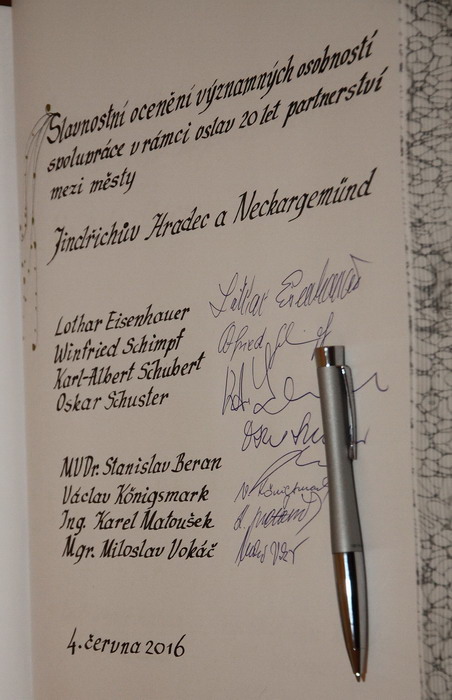 Slavnostní ocenění významných osobností
spolupráce v rámci oslav 20 let partnerství
mezi městy
Jindřichův Hradec a Neckargemünd
Lothar Eisenhauer
Winfried Schimpf
Karl-Albert Schubert
Oskar Schuster
MVDr. Stanislav Beran
Václav Königsmark
Ing. Karel Matoušek
Mgr. Miloslav Vokáč
4. června 2016